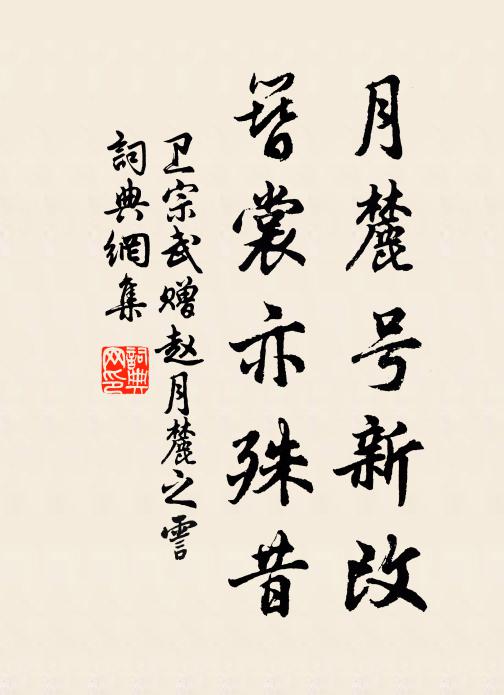 月麓号新改
簪裳亦殊昔
卫宗武赠赵月麓之霅
詞典網集
詞典网印